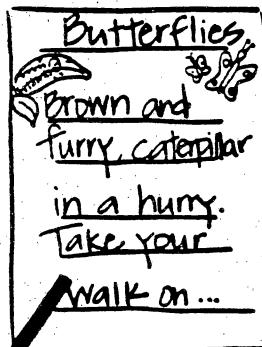 Butterflies
Brown and
furry caterpillar
in a hurry.
Take your
walk on...